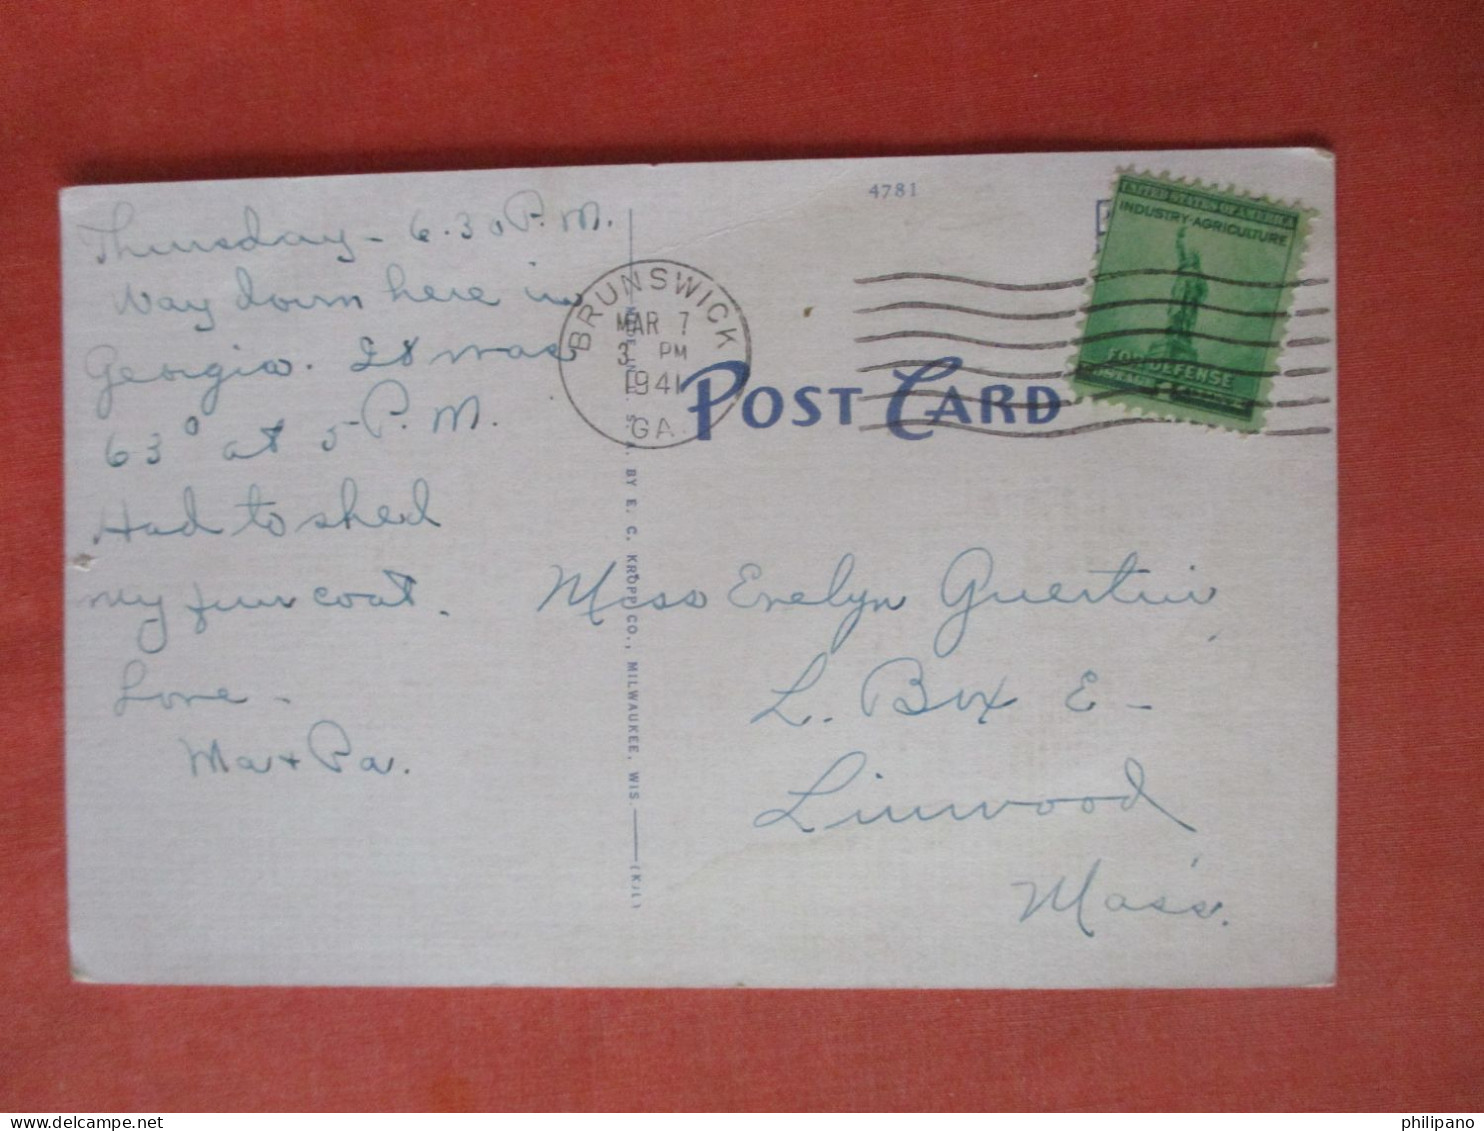 Thursday - 6.30 P.M.
Way down here in
Georgia. It was
63° at 5 P.M.
Had to shed
my fur coat.
Love -
Ma + Pa.
4781
BRUNSWICK
MAR 7
3 PM
1941
GA.
UNITED STATES OF AMERICA
INDUSTRY·AGRICULTURE
FOR DEFENSE
POST CARD
BY E. C. KROPP CO., MILWAUKEE, WIS.
Miss Evelyn Guertin
L. Box E -
Linwood
Mass.
philipano